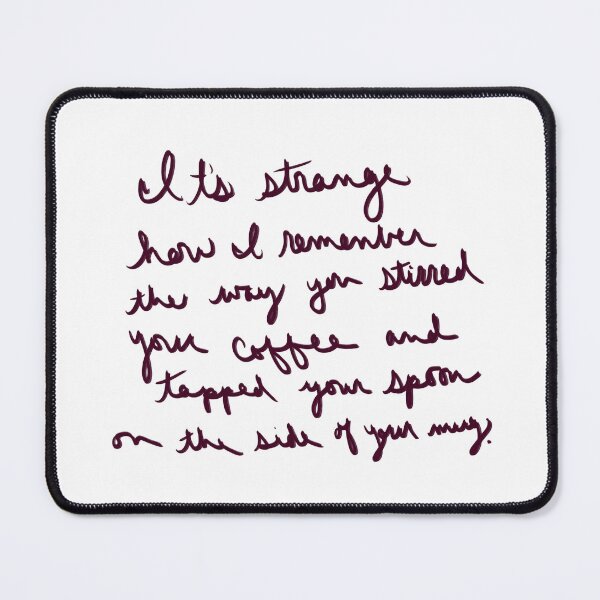 It's strange
how I remember
the way you stirred
your coffee and
tapped your spoon
on the side of your mug.